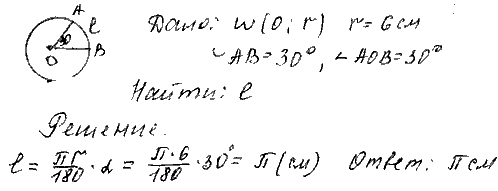 A
l
30
B
O
Дано: w(O; r) r = 6 см
◡AB = 30°, ∠AOB = 30°
Найти: l
Решение.
l = πr/180 · α = π·6/180 · 30° = π (см) Ответ: π см